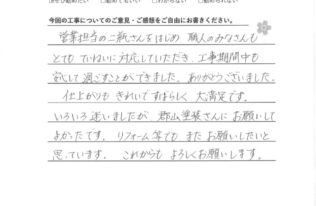 今回の工事についてのご意見・ご感想をご自由にお書きください。
営業担当の二瓶さんをはじめ 職人のみなさんも
とてもていねいに対応していただき、工事期間中も
安心して過ごすことができました。ありがとうございました。
仕上がりも きれいですばらしく 大満足です。
いろいろ迷いましたが 郡山塗装さんにお願いして
よかったです。リフォーム等でも またお願いしたいと
思っています。 これからも よろしくお願いします。